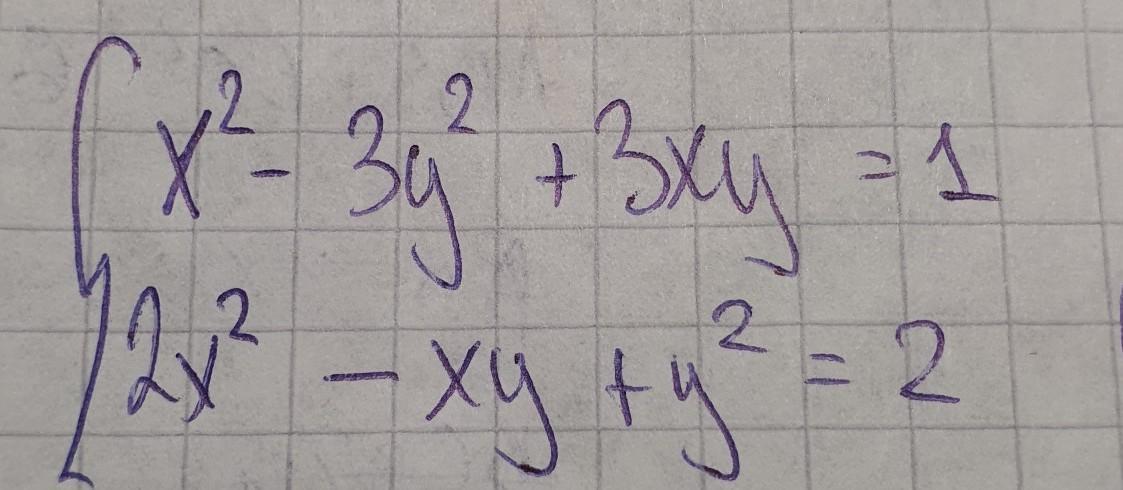 x² - 3y² + 3xy = 1
2x² - xy + y² = 2